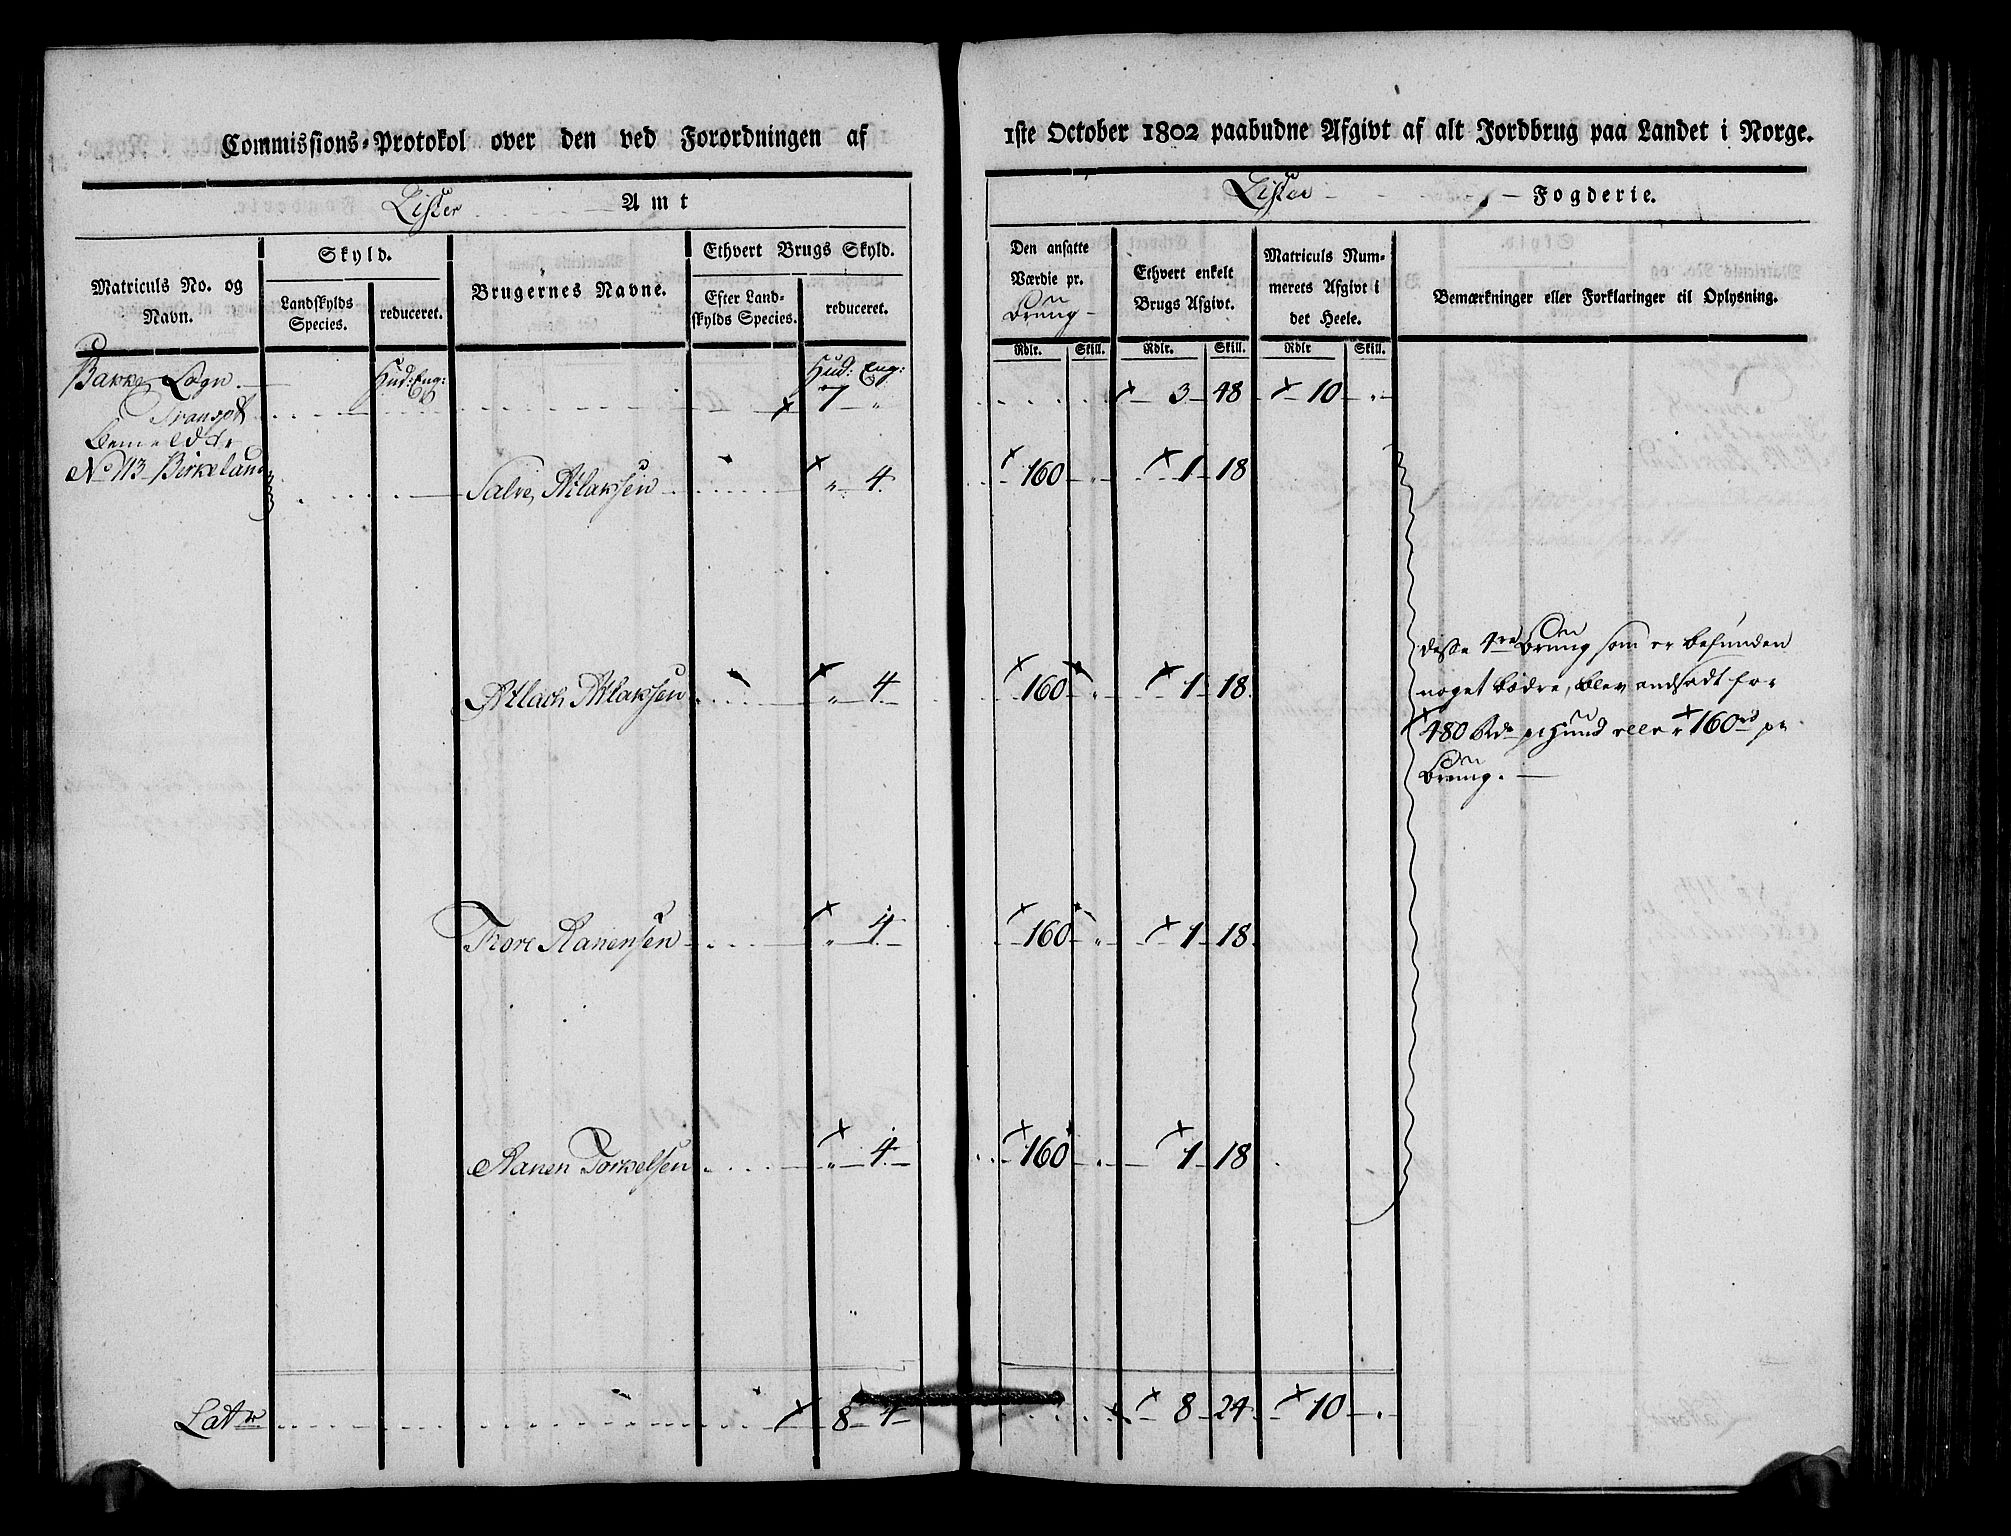 Commissions-Protokol over den ved Forordningen af
1ste October 1802 paabudne Afgivt af alt Jordbrug paa Landet i Norge.
Lister Amt
Lister Fogderie.
Matriculs No. og Navn.
Skyld.
Landskylds Species.
reduceret.
Brugernes Navne.
Ethvert Brugs Skyld.
Efter Landskylds Species.
reduceret.
Den ansatte Værdie pr.
Ethvert enkelt Brugs Afgivt.
Matriculs Nummerets Afgivt i det Heele.
Bemærkninger eller Forklaringer til Oplysning.
Rdlr. Skill. Rdlr. Skill. Rdlr Skill.
Bakke Sogn. Hud: Eng: Hud: Eng:
Transpt 7 " 3 48 10 "
No 113 Birkeland
Salve Atlaksen " 4 160 " 1 18
Atlach Atlaksen " 4 160 " 1 18
Tore Aanensen " 4 160 " 1 18
Aanen Torkelsen " 4 160 " 1 18
disse 4re Brug som er befunden
noget bedre, blev andsadt for
480 Rdr pr Hud eller 160 rd pr
Latr 8 4 8 24 10 "